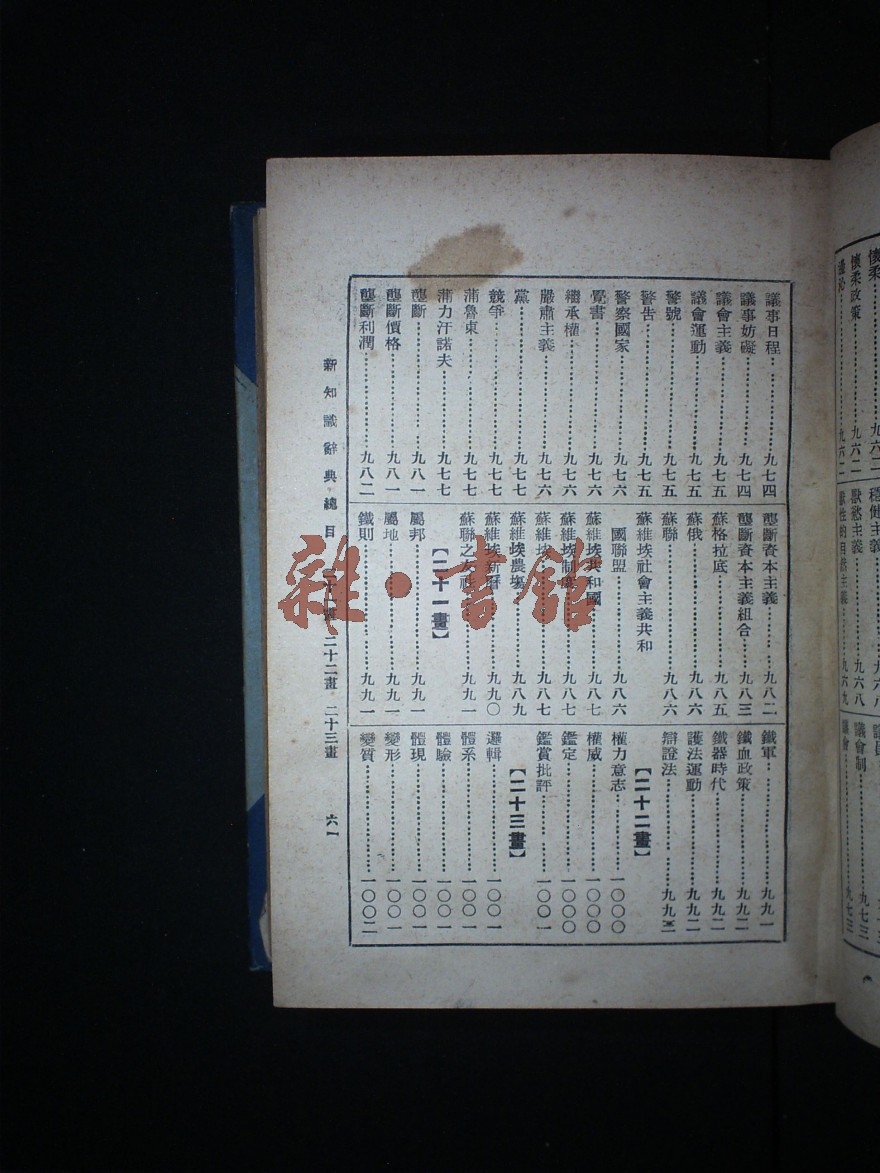 議事日程⋯⋯九七四
議事妨礙⋯⋯九七四
議會主義⋯⋯九七五
議會運動⋯⋯九七五
警號⋯⋯九七五
警告⋯⋯九七五
警察國家⋯⋯九七六
覺書⋯⋯九七六
繼承權⋯⋯九七六
嚴肅主義⋯⋯九七六
黨⋯⋯九七七
競爭⋯⋯九七七
蒲魯東⋯⋯九七七
蒲力汗諾夫⋯⋯九七七
壟斷⋯⋯九八一
壟斷價格⋯⋯九八一
壟斷利潤⋯⋯九八二
壟斷資本主義⋯⋯九八二
壟斷資本主義組合⋯⋯九八三
蘇格拉底⋯⋯九八五
蘇俄⋯⋯九八六
蘇聯⋯⋯九八六
蘇維埃社會主義共和
國聯盟⋯⋯九八六
蘇維埃共和國⋯⋯九八七
蘇維埃制度⋯⋯九八七
蘇維埃⋯⋯九八七
蘇維埃農場⋯⋯九八九
蘇維埃新曆⋯⋯九九〇
蘇聯之友社⋯⋯九九一
【二十一畫】
屬邦⋯⋯九九一
屬地⋯⋯九九一
鐵則⋯⋯九九一
鐵軍⋯⋯九九一
鐵血政策⋯⋯九九二
鐵器時代⋯⋯九九二
護法運動⋯⋯九九二
辯證法⋯⋯九九三
【二十二畫】
權力意志⋯⋯一〇〇〇
權威⋯⋯一〇〇〇
鑑定⋯⋯一〇〇〇
鑑賞批評⋯⋯一〇〇一
【二十三畫】
邏輯⋯⋯一〇〇一
體系⋯⋯一〇〇一
體驗⋯⋯一〇〇一
體現⋯⋯一〇〇一
變形⋯⋯一〇〇一
變質⋯⋯一〇〇二
新知識辭典總目 二十一畫 二十二畫 二十三畫 六一
雜·書館
懷柔⋯⋯九六二
懷柔政策⋯⋯九六二
九六二
穩健主義⋯⋯九六八
獸慾主義⋯⋯九六八
獸性的自然主義⋯⋯九六九
議會制⋯⋯九七三
議會⋯⋯九七三